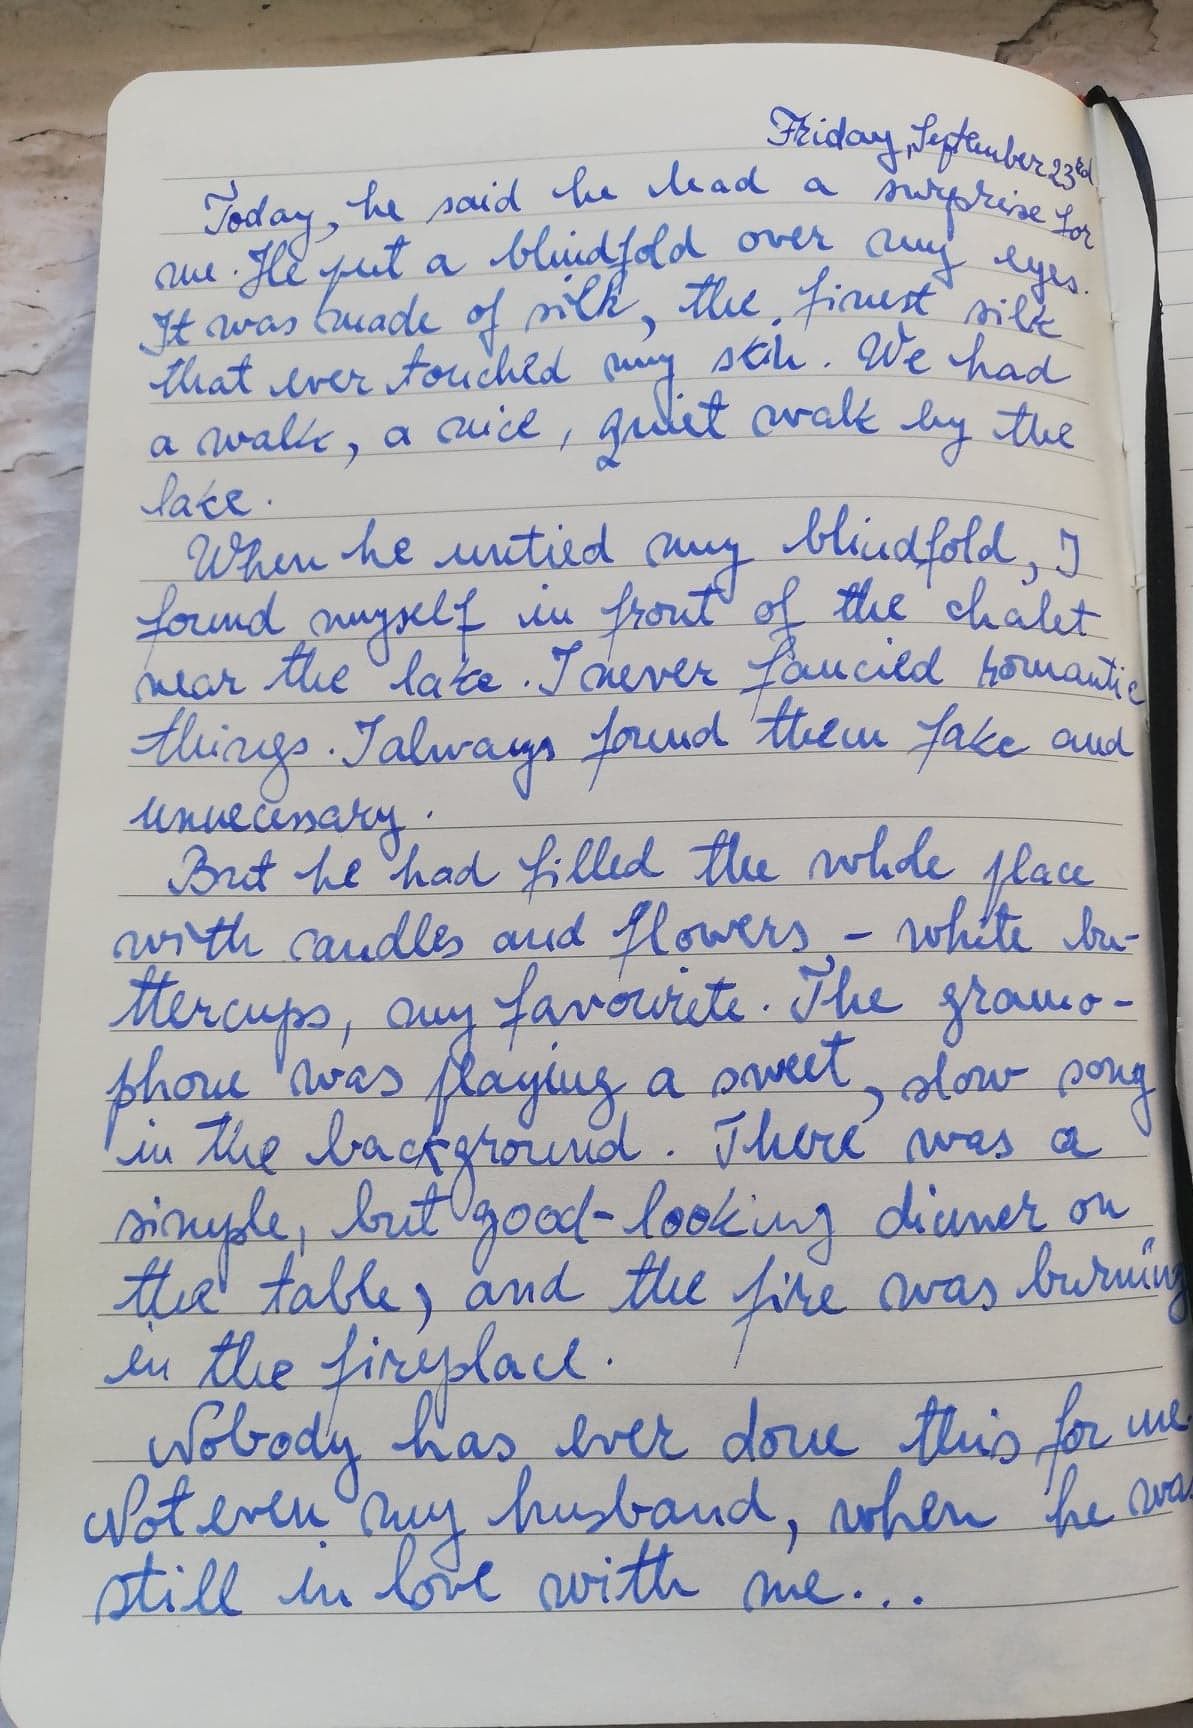 Friday, September 23rd
Today, he said he had a surprise for
me. He put a blindfold over my eyes.
It was made of silk, the finest silk
that ever touched my skin. We had
a walk, a nice, quiet walk by the
lake.
When he untied my blindfold, I
found myself in front of the chalet
near the lake. I never fancied romantic
things. I always found them fake and
unnecessary.
But he had filled the whole place
with candles and flowers - white bu-
ttercups, my favourite. The gramo-
phone was playing a sweet, slow song
in the background. There was a
simple, but good-looking dinner on
the table, and the fire was burning
in the fireplace.
Nobody has ever done this for me.
Not even my husband, when he was
still in love with me...